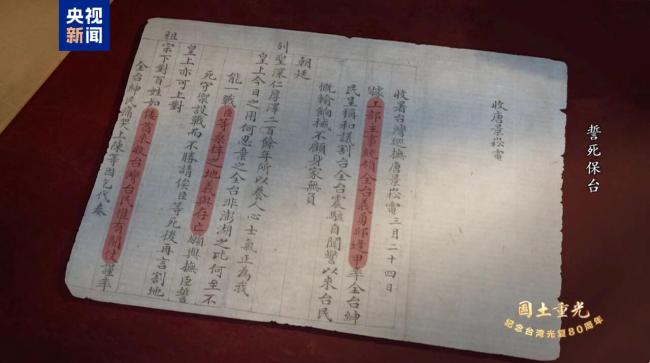 央视
新闻
收唐景崧電
收署台灣巡撫唐景崧電三月二十四日
據工部主事統領全台義勇邱逢甲率全台紳
民呈稱和議割台全台震駭自聞警以來台民
慨輸餉械不顧身家無負
朝廷
列聖深仁厚澤二百餘年所以養人心士氣正為我
皇上今日之用何忍棄之全台非澎湖之比何至不
能一戰臣等桑梓之地義與存亡願與撫臣誓
死守禦設戰而不勝請俟臣等死後再言割地
皇上亦可上對
祖宗下對百姓如倭酋來收台灣台民惟有開仗謹率
全台紳民痛哭上陳等因乞代奏
誓死保台
国土重光
纪念台湾光复80周年